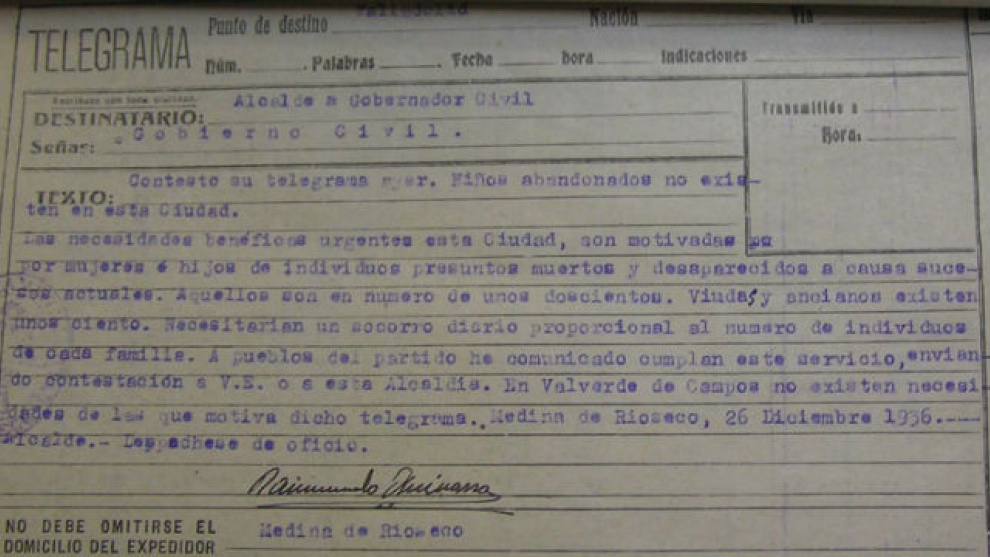 TELEGRAMA
Punto de destino Valladolid Nación Vía
Núm. Palabras Fecha hora Indicaciones
DESTINATARIO: Alcalde a Gobernador Civil
Señas: Gobierno Civil.
Transmitido a
Hora:
TEXTO: Contesto su telegrama ayer. Niños abandonados no exis-
ten en esta Ciudad.
Las necesidades benéficas urgentes esta Ciudad, son motivadas
por mujeres é hijos de individuos presuntos muertos y desaparecidos a causa suce-
sos actuales. Aquellos son en numero de unos doscientos. Viudas y ancianos existen
unos ciento. Necesitarian un socorro diario proporcional al numero de individuos
de cada familia. A pueblos del partido he comunicado cumplan este servicio, envian
do contestación a V.E. o a esta Alcaldia. En Valverde de Campos no existen necesi
dades de las que motiva dicho telegrama. Medina de Rioseco, 26 Diciembre 1936.----
Alcalde.- Despadhese de oficio.
Raimundo
NO DEBE OMITIRSE EL
DOMICILIO DEL EXPEDIDOR
Medina de Rioseco